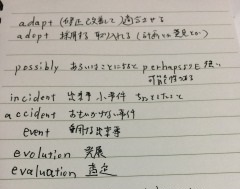 adapt (修正 改善して)適合させる
adopt 採用する 取り入れる (計画とか 意見とか)
possibly あるいはことによると perhapsよりも 強い
可能性がある
incident 出来事 小事件 ちょっとしたこと
accident おもいがけない事件
event 重要な出来事
evolution 発展
evaluation 査定